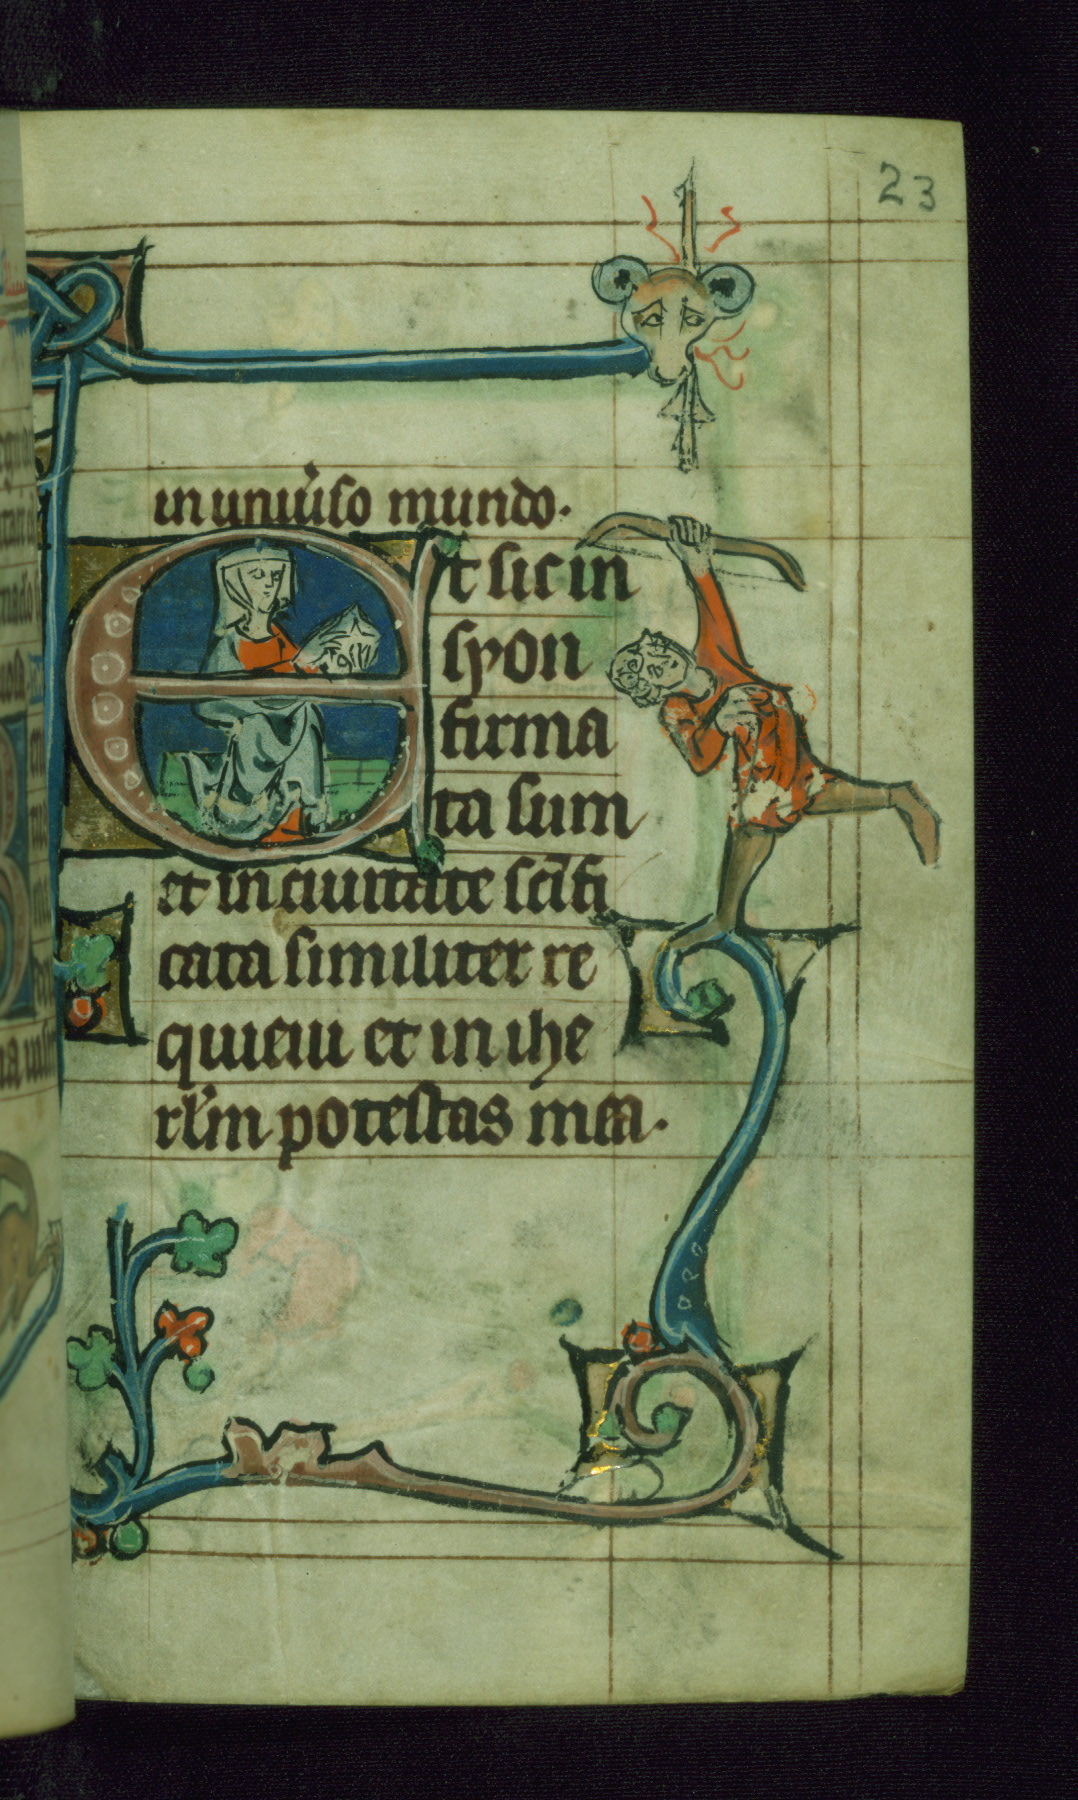 23
in uniu'so mundo.
Et sic in
syon
firma
ta sum
et in ciuitate sc̄ifi
cata similiter re
quieui et in ihe
rl'm potestas mea.